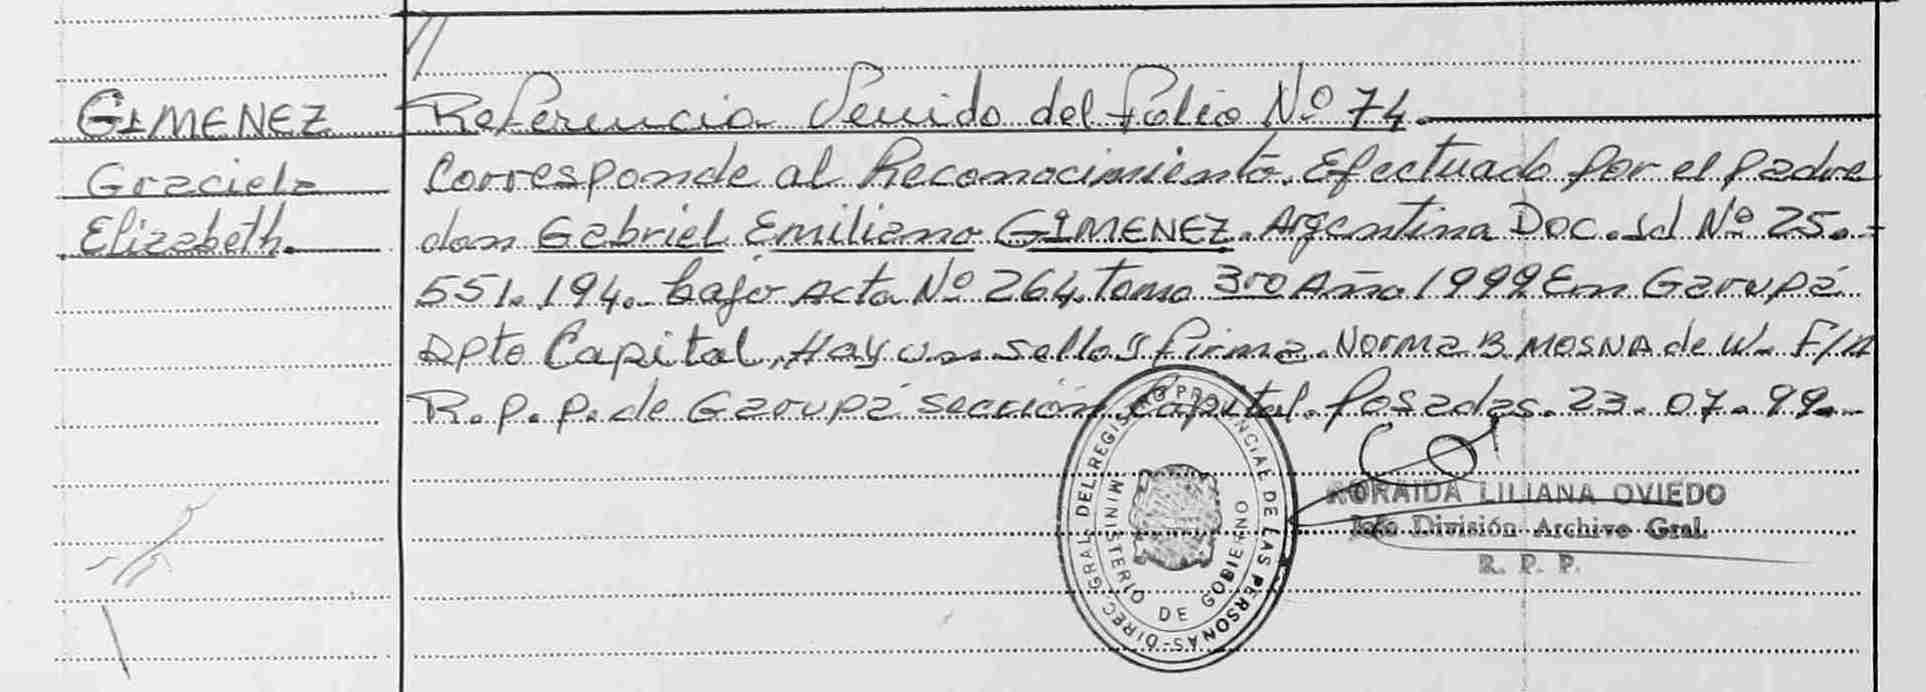 GIMENEZ
Graciela
Elizabeth.
Referencia Venido del folio Nº 74.
Corresponde al Reconocimiento. Efectuado por el padre
don Gabriel Emiliano GIMENEZ. Argentina Doc. Id Nº 25.-
551.194. bajo Acta Nº 264. tomo 3ro Año 1999 En Garupá
Dpto Capital. Hay un sello y firma. Norma B MOSNA de W. F/n
R.P.P. de Garupá sección Capital. Posadas. 23.07.99.-
DIREC. GRAL. DEL REGISTRO PROVINCIAL DE LAS PERSONAS-
MINISTERIO DE GOBIERNO
ZORAIDA LILIANA OVIEDO
Jefe División Archivo Gral.
R. P. P.